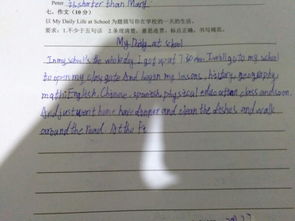 Peter is shorter than Mary.
七、作文(10分)
以 My Daily Life at School 为题描写你在学校的一天的生活。
要求:1.不少于五句话 2.条理清楚,意思连贯,标点正确,书写规范。
My Daily at school
In my school's the I get up at I go to my school
to open my class And began my lessons, history, geography,
math, English, Chinese, spanish, physical education class and soon.
And just went home have danner and clean the dishes and walk
around the road. At the